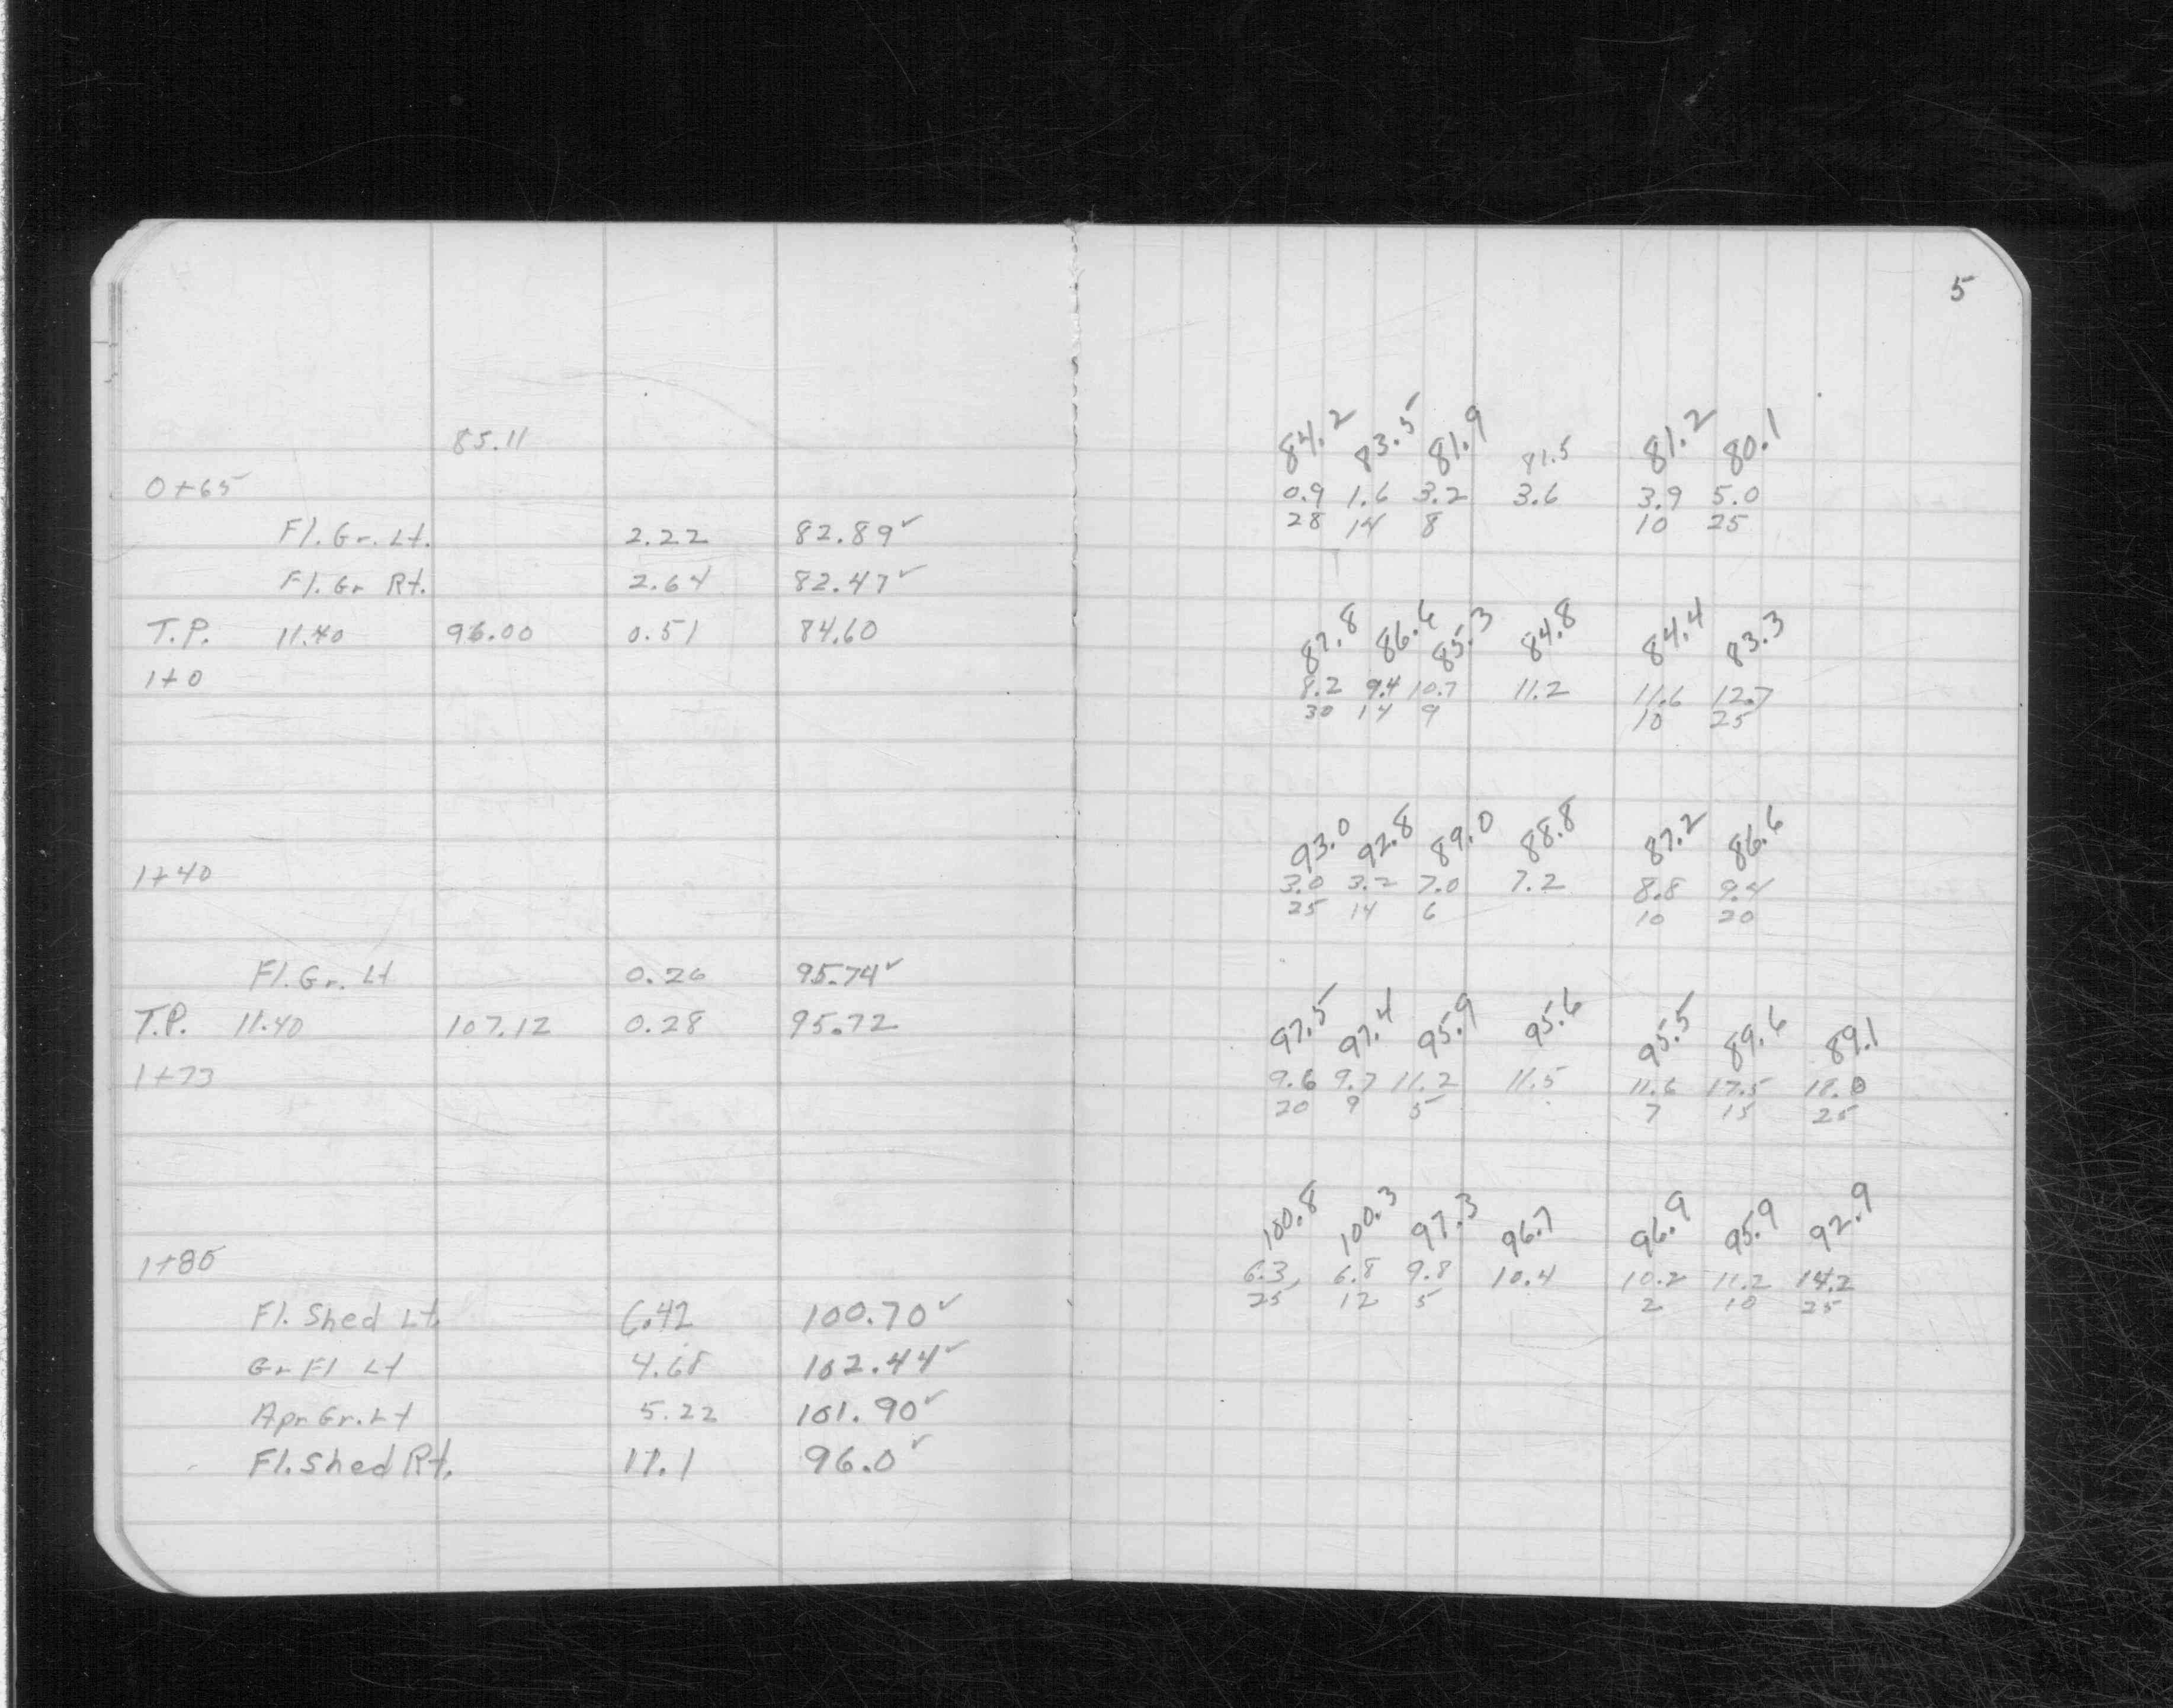 5
85.11
84.2 83.5 81.9 81.5 81.2 80.1
0+65
0.9 1.6 3.2 3.6 3.9 5.0
28 14 8 10 25
Fl. Gr. Lt. 2.22 82.89✓
Fl. Gr Rt. 2.64 82.47✓
T.P. 11.40 96.00 0.51 84.60
87.8 86.6 85.3 84.8 84.4 83.3
1+0
8.2 9.4 10.7 11.2 11.6 12.7
30 14 9 10 25
93.0 92.8 89.0 88.8 87.2 86.6
1+40
3.0 3.2 7.0 7.2 8.8 9.4
25 14 6 10 20
Fl. Gr. Lt 0.26 95.74✓
T.P. 11.40 107.12 0.28 95.72
97.5 97.4 95.9 95.6 95.5 89.6 89.1
1+73
9.6 9.7 11.2 11.5 11.6 17.5 18.0
20 9 5 7 15 25
100.8 100.3 97.3 96.7 96.9 95.9 92.9
1+80
6.3 6.8 9.8 10.4 10.2 11.2 14.2
25 12 5 2 10 25
Fl. Shed Lt. 6.42 100.70✓
Gr Fl Lt 4.68 102.44✓
Apr Gr. Lt 5.22 101.90✓
Fl. Shed Rt. 11.1 96.0✓